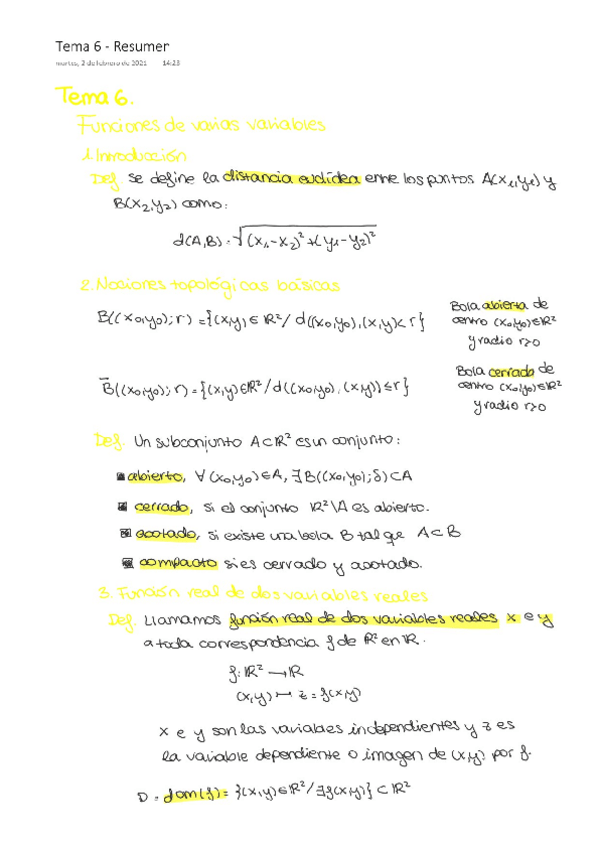 Tema 6 - Resumen
martes, 2 de febrero de 2021 14:23
Tema 6.
Funciones de varias variables
1. Introducción
Def. Se define la distancia euclídea entre los puntos A(x₁,y₁) y
B(x₂,y₂) como:
d(A,B) = √(x₁-x₂)² + (y₁-y₂)²
2. Nociones topológicas básicas
B((x₀,y₀);r) = {(x,y) ∈ ℝ² / d((x₀,y₀),(x,y) < r}
Bola abierta de
centro (x₀,y₀) ∈ ℝ²
y radio r>0
B̄((x₀,y₀);r) = {(x,y) ∈ ℝ² / d((x₀,y₀),(x,y)) ≤ r}
Bola cerrada de
centro (x₀,y₀) ∈ ℝ²
y radio r>0
Def. Un subconjunto A⊂ℝ² es un conjunto:
abierto, ∀(x₀,y₀)∈A, ∃B((x₀,y₀);δ)⊂A
cerrado, si el conjunto ℝ²\A es abierto.
acotado, si existe una bola B tal que A⊂B
compacto si es cerrado y acotado.
3. Función real de dos variables reales
Def. Llamamos función real de dos variables reales x e y
a toda correspondencia f de ℝ² en ℝ.
f: ℝ² → ℝ
(x,y) ↦ z = f(x,y)
x e y son las variables independientes y z es
la variable dependiente o imagen de (x,y) por f.
D = dom(f) = {(x,y)∈ℝ² / ∃f(x,y)} ⊂ ℝ²